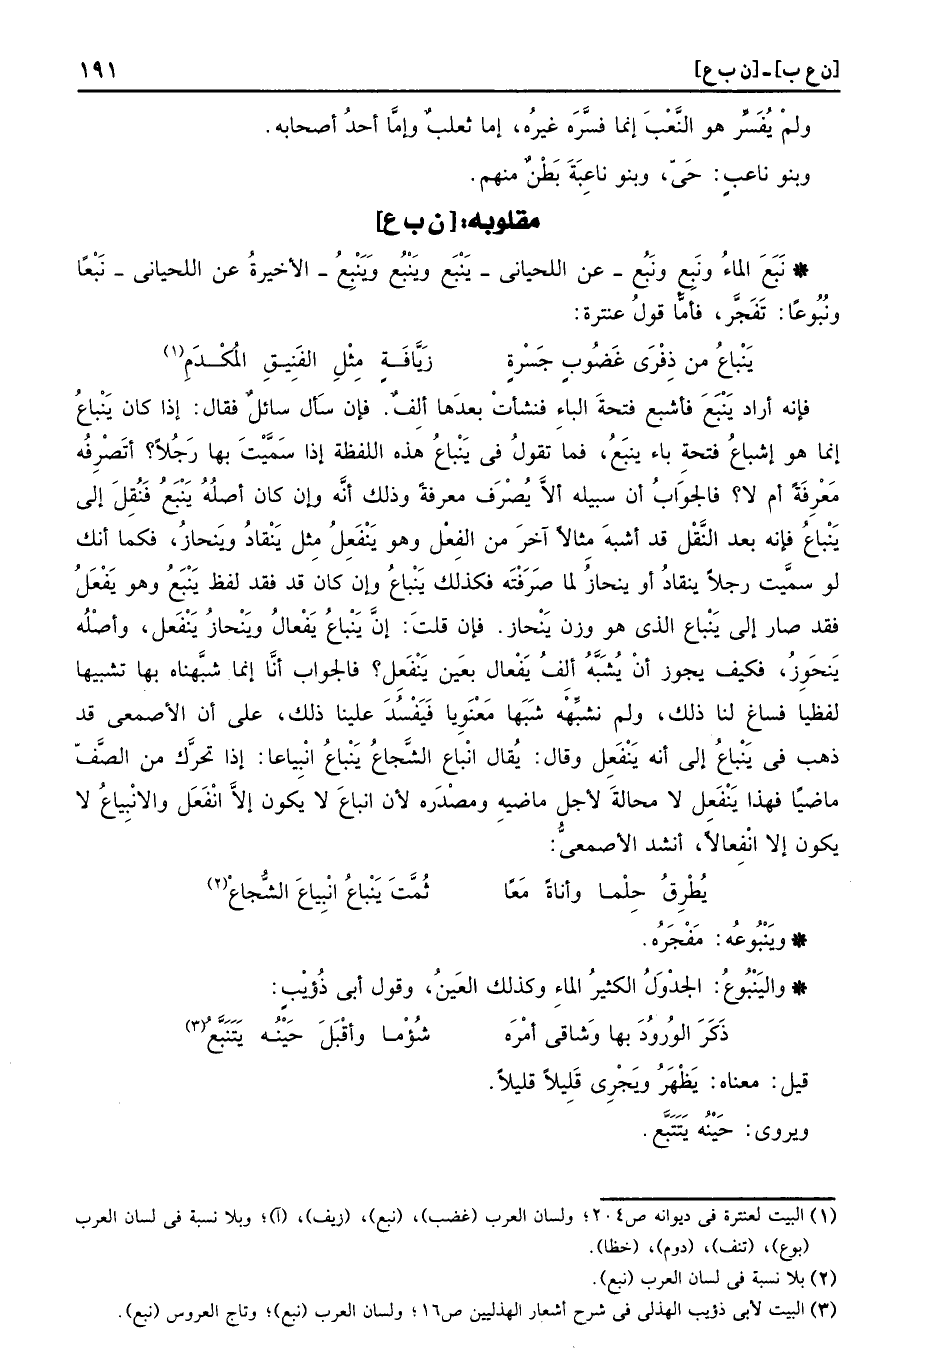 [ن ع ب] - [ن ب ع] ١٩١
ولمْ يُفَسِّر هو النَّعْبَ إنما فسَّرَه غيرُه، إما ثعلبٌ وإمَّا أحدُ أصحابه.
وبنو ناعبٍ: حَىّ، وبنو ناعِبَةَ بَطْنٌ منهم.
مقلوبه: [ن ب ع]
* نَبَعَ الماءُ ونَبِع ونَبُع - عن اللحيانى - يَنْبَع ويَنْبُع ويَنْبِعُ - الأخيرةُ عن اللحيانى - نَبْعًا
ونُبُوعًا: تَفَجَّر، فأمَّا قولُ عنترة:
يَنْباعُ من ذِفْرَى غَضُوبٍ جَسْرةٍ زَيَّافَــةٍ مِثْلِ الفَنِيـقِ المُكْــدَمِ(١)
فإنه أراد يَنْبَعَ فأشبع فتحةَ الباء فنشأتْ بعدَها ألفٌ. فإن سَأل سائلٌ فقال: إذا كان يَنْباعُ
إنما هو إشباعُ فتحةِ باء ينبَعُ، فما تقولُ فى يَنْباعُ هذه اللفظة إذا سَمَّيْتَ بها رَجُلاً؟ أتَصْرِفُه
مَعْرِفَةً أم لا؟ فالجوَابُ أن سبيله ألاَّ يُصْرَف معرفةً وذلك أنَّه وإن كان أصلُهُ يَنْبَعُ فَنُقِلَ إلى
يَنْباعُ فإنه بعد النَّقْل قد أشبهَ مثالاً آخرَ من الفِعْل وهو يَنْفَعِلُ مثل يَنْقادُ ويَنحازُ، فكما أنك
لو سمَّيت رجلاً ينقادُ أو ينحازُ لما صَرَفْتَه فكذلك يَنْباعُ وإن كان قد فقد لفظ يَنْبَعُ وهو يَفْعَلُ
فقد صار إلى يَنْباع الذى هو وزن يَنْحاز. فإن قلتَ: إنَّ يَنْباعُ يَفْعالُ ويَنْحازُ يَنْفَعل، وأصلُهُ
يَنحَوِزُ، فكيف يجوز أنْ يُشَبَّهُ ألفُ يَفْعال بعَين يَنْفَعِل؟ فالجواب أنَّا إنما شبَّهناه بها تشبيها
لفظيا فساغ لنا ذلك، ولم نشبِّهْه شبَها مَعْنَويا فَيَفْسُدَ علينا ذلك، على أن الأصمعى قد
ذهب فى يَنْباعُ إلى أنه يَنْفَعِل وقال: يُقال انْباع الشَّجاعُ يَنْباعُ انْبِياعا: إذا تحرَّك من الصَّفّ
ماضيًا فهذا يَنْفَعِل لا محالةَ لأجل ماضيه ومصْدَره لأن انباعَ لا يكون إلاَّ انْفَعَل والانْبِياعُ لا
يكون إلا انْفِعالاً، أنشد الأصمعىُّ:
يُطْرِقُ حِلْمـا وأناةً مَعًا ثُمَّتَ يَنْباعُ انْبِياعَ الشُّجاعْ(٢)
* ويَنْبُوعُه: مَفْجَرُه.
* واليَنْبُوعُ: الجَدْوَلُ الكثيرُ الماء وكذلك العَينُ، وقول أبى ذُؤَيْبٍ:
ذَكَرَ الوُرُودَ بها وشاقى أمْرَه شُؤْمـا وأقْبَلَ حَيْنُـه يَتَنَبَّع(٣)
قيل: معناه: يَظْهَرُ ويَجْرِى قَلِيلاً قليلاً.
ويروى: حَيْنُه يَتَتَبَّع.
(١) البيت لعنترة فى ديوانه ص٢٠٤؛ ولسان العرب (غضب)، (نبع)، (زيف)، (آ)؛ وبلا نسبة فى لسان العرب
(بوع)، (تنف)، (دوم)، (خظا).
(٢) بلا نسبة فى لسان العرب (نبع).
(٣) البيت لأبى ذؤيب الهذلى فى شرح أشعار الهذليين ص١٦؛ ولسان العرب (نبع)؛ وتاج العروس (نبع).